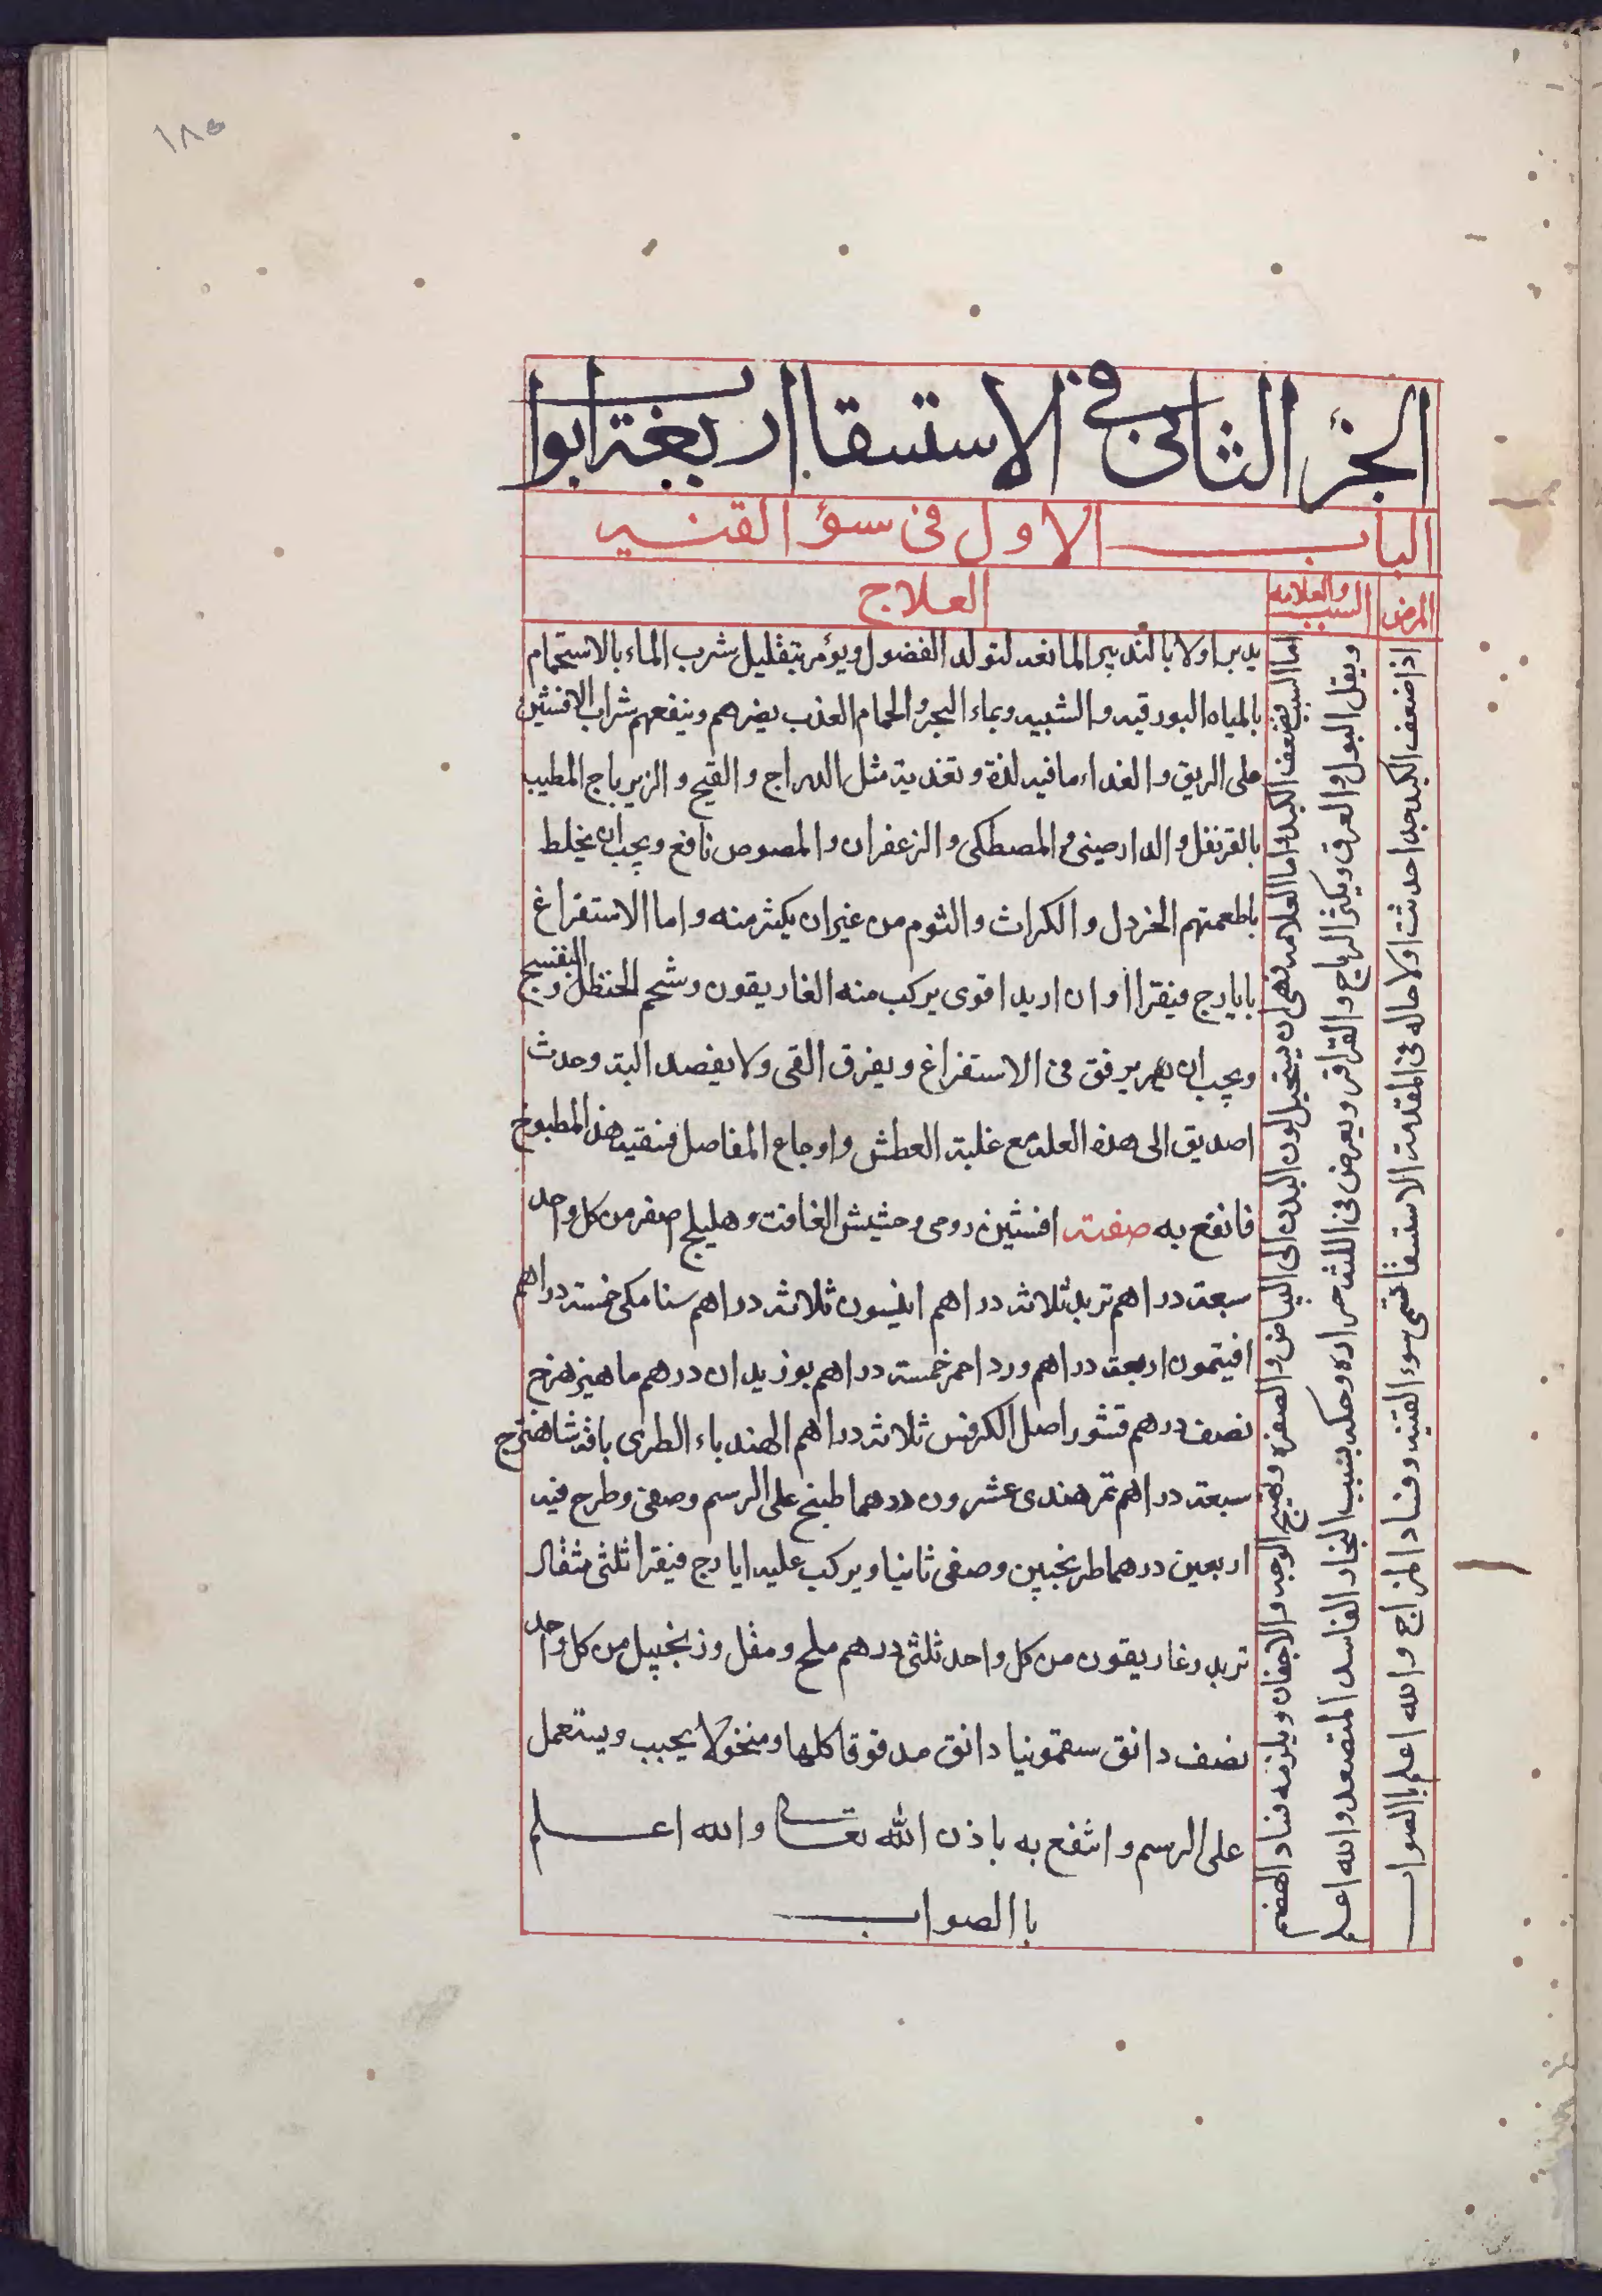 ١٨٥
الجزؤ الثانى فى الاستسقا اربعة ابواب
الباب الاول فى سؤ القنيه
المرض
السبب والعلامه
العلاج
اذا ضعف الكبد جدا حدثت اولا حاله فى المقدمة الاستسقا تسمى سوء القنيه وفساد المزاج والله اعلم باالصواب
اما السبب فضعف الكبد واما العلامه فهى ان يستحيل لون البدن الى البياض والصفره وتهيج الوجه والاجفان ويلزمه فساد الهضم
ويقل البول والعرق ويكثر الرياح والقراقر ويعرض فى اللثه حراره وحكه بسبب البخار الفاسد المتصعد والله اعلم
يدبر اولا بالتدبير المانعه لتولد الفضول ويؤمر بتقليل شرب الماء بالاستحمام
بالمياه البورقيه والشبيه وبماء البحر والحمام العذب يضرهم وينفعهم شراب الافنثين
على الريق والغداء مافيه لذة وتغدية مثل الدراج والقبج والزيرباج المطيب
بالقرنفل والدارصينى والمصطكى والزعفران والمصوص نافع ويجب ان يخلط
باطعمتهم الخردل والكراث والثوم من غير ان يكثر منه واما الاستفراغ
بايارج فيقرا او ان اريد اقوى يركب منه الغاريقون وشحم الحنظل والبنفسج
ويجب ان يرفق فى الاستفراغ ويفرق القى ولا يفصد البته وحدث
اصديق الى هذه العله مع غلبة العطش واوجاع المفاصل فنقيته هذا المطبوخ
فانفع به صفته افنثين رومى وحشيش الغافت وهليلج اصفر من كل واحد
سبعة دراهم تربد ثلاثه دراهم انيسون ثلاثه دراهم سنا مكى خمسة دراهم
افيتمون اربعة دراهم ورد احمر خمسة دراهم بوزيدان درهم ماهيزهرج
نصف درهم قشور اصل الكرفس ثلاثه دراهم الهندباء الطرى باقه شاهترج
سبعة دراهم تمر هندى عشرون درهما طبخ على الرسم وصفى وطرح فيه
اربعين درهما طرنجبين وصفى ثانيا ويركب عليه ايارج فيقرا ثلثى مثقال
تربد وغاريقون من كل واحد ثلثى درهم ملح ومقل وزنجبيل من كل واحد
نصف دانق سقمونيا دانق مدقوقا كلها ومنخولا يحبب ويستعمل
على الرسم وانتفع به باذن الله تعالى والله اعلم
باالصواب